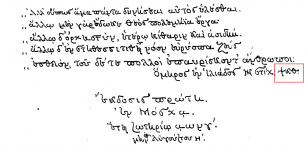 „Ἀλλ' οὔπως ἅμα πάντα δυνήσεαι αὐτὸς ἑλέσθαι.
„ἄλλῳ μὲν γὰρ ἔδωκε θεὸς πολεμήϊα ἔργα
„ἄλλῳ δ' ὀρχηστὺν, ἑτέρῳ κίθαριν καὶ ἀοιδήν.
„ἄλλῳ δ' ἐν στήθεσσι τιθεῖ νόον εὐρύοπα Ζεὺς
ἐσθλόν, τοῦ δέ τε πολλοὶ ἐπαυρίσκοντ' ἄνθρωποι.
Ὅμηρος ἐν Ἰλιάδος Ν στίχ. ψκθ.
Ἔκδοσις πρώτη.
ἐν Μόσχᾳ.
ἔτει Σωτηρίῳ
μηνὶ Αὐγούστου Η.